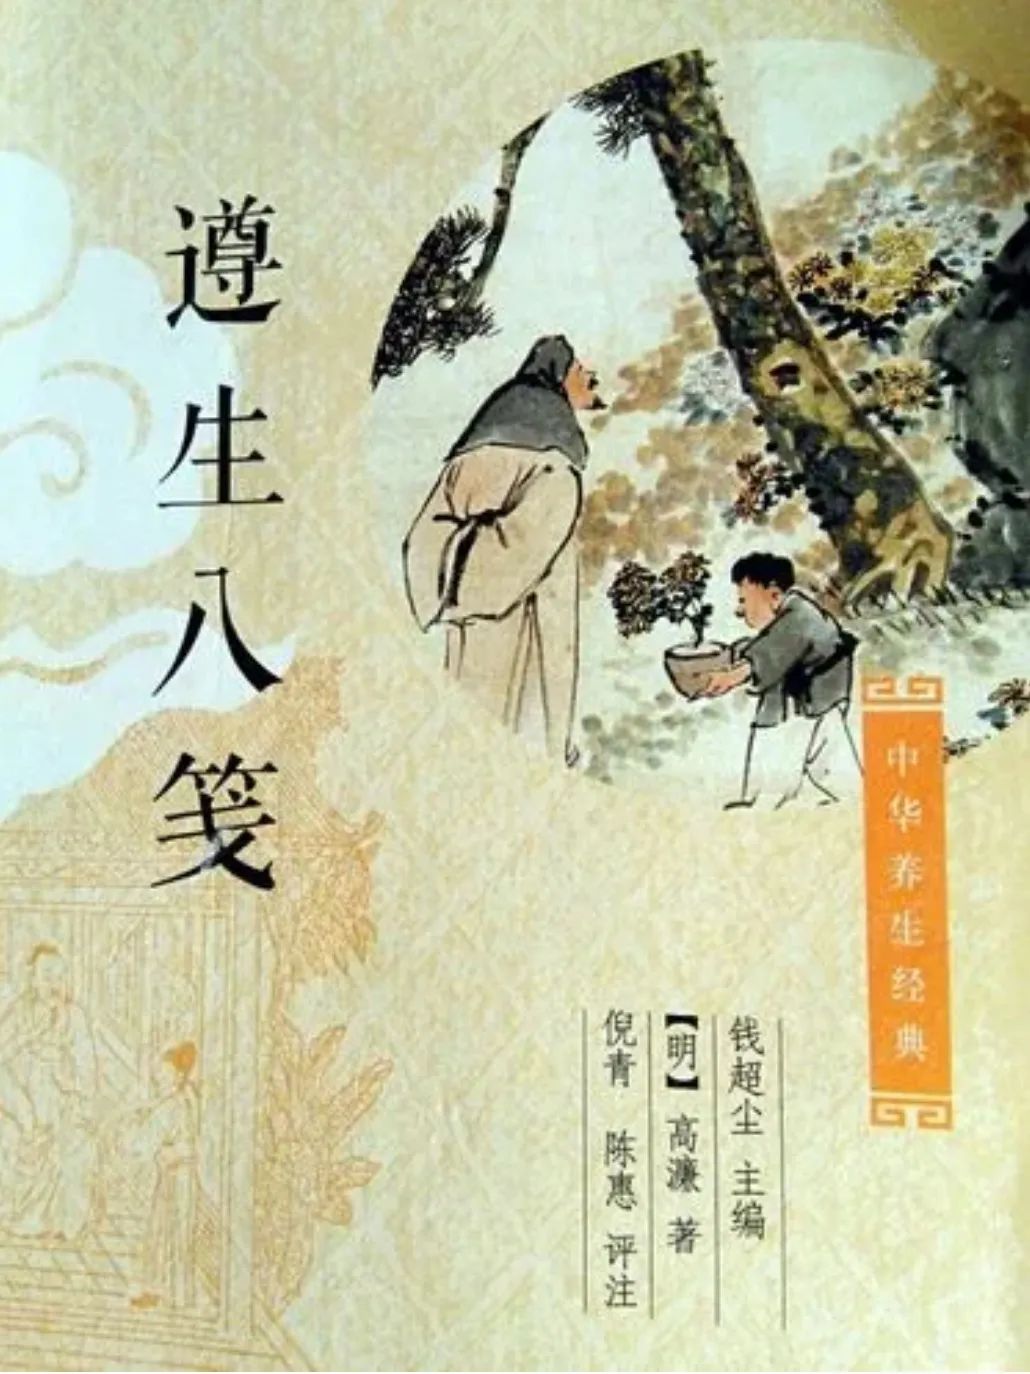 遵生八笺
中华养生经典
钱超尘 主编
【明】 高濂 著
倪青 陈惠 评注